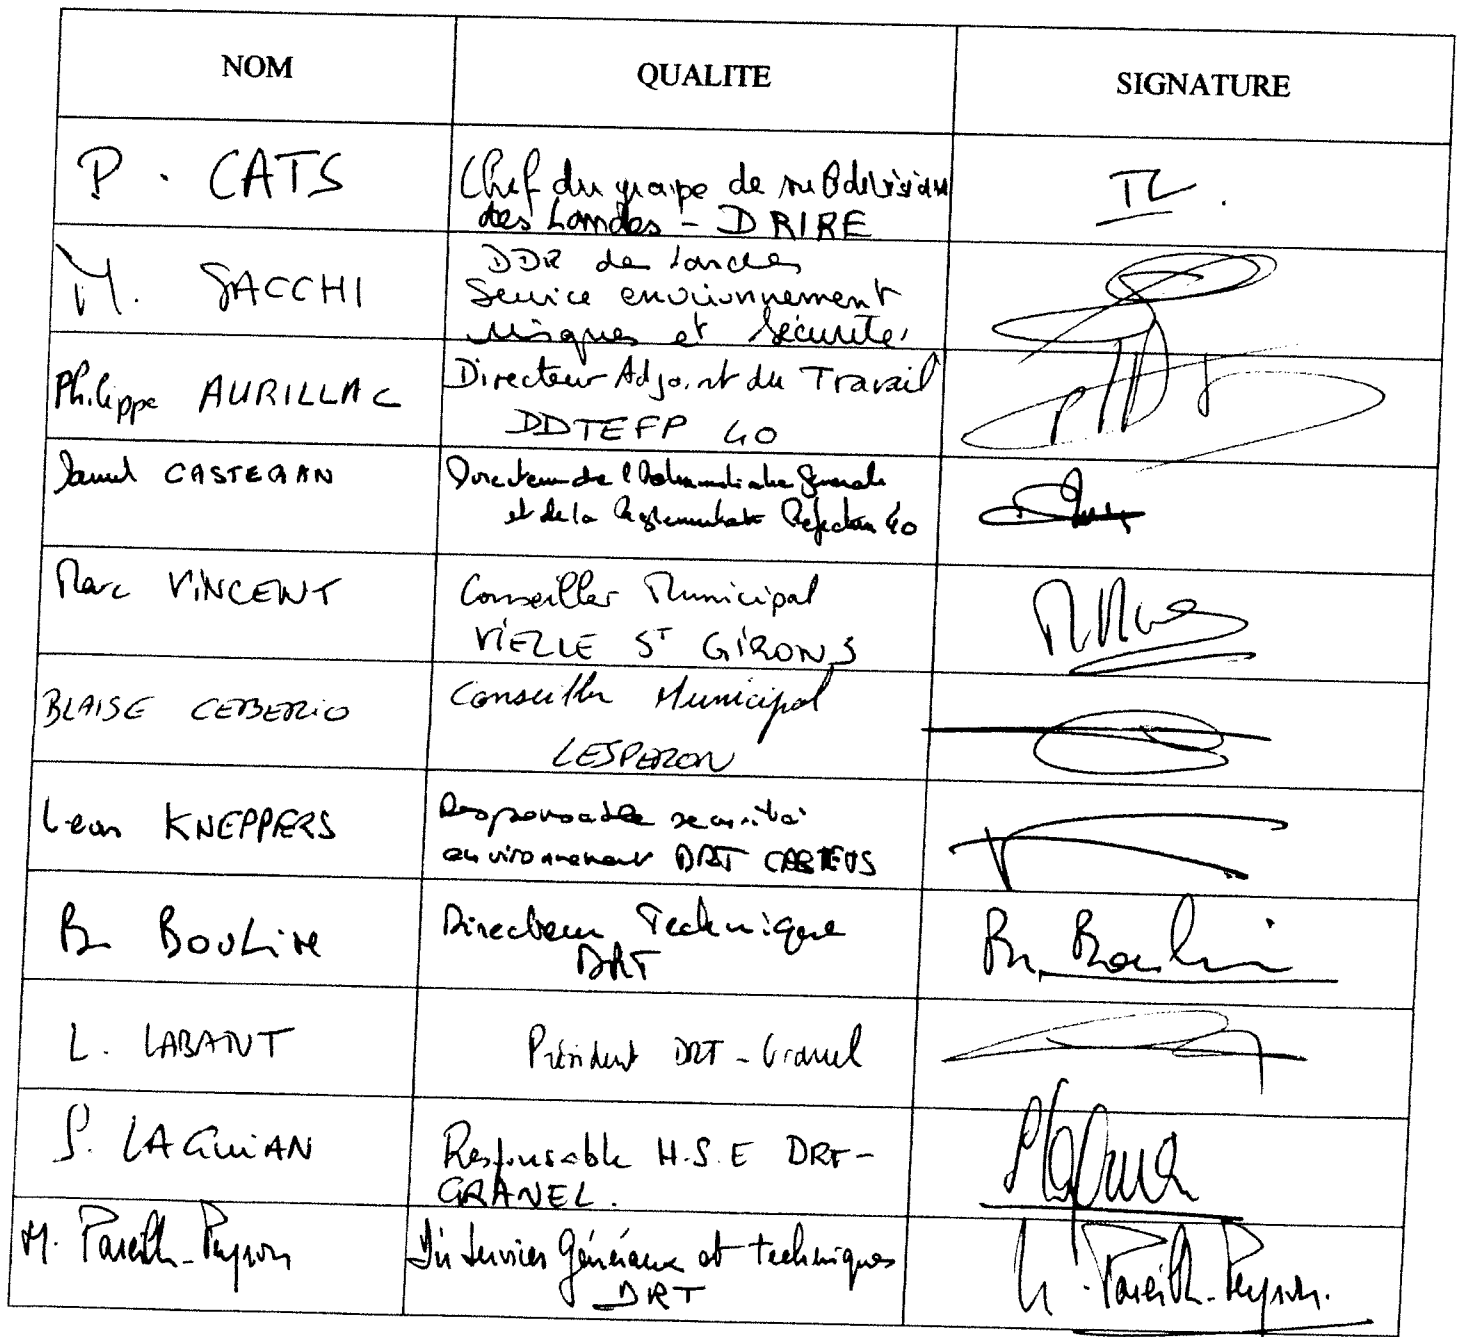 NOM QUALITE SIGNATURE
P. CATS Chef du groupe de subdivision
des Landes - DRIRE
M. SACCHI DDR des Landes
Service environnement
risques et sécurité
Philippe AURILLAC Directeur Adjoint du Travail
DDTEFP 40
Daniel CASTEGAN Directeur de l'Administration Générale
et de la Réglementation Préfecture 40
Marc VINCENT Conseiller Municipal
VIELLE ST GIRONS
BLAISE CEBERIO Conseiller Municipal
LESPERON
Leon KNEPPERS Responsable sécurité
environnement DRT CASTETS
B. BOULINE Directeur Technique
DRT
L. LABANT Président DRT - Granel
S. LAGUIAN Responsable H.S.E DRT-
GRANEL.
M. Pareilh-Peyrou Dir Services Généraux et techniques
DRT M. Pareilh-Peyrou.